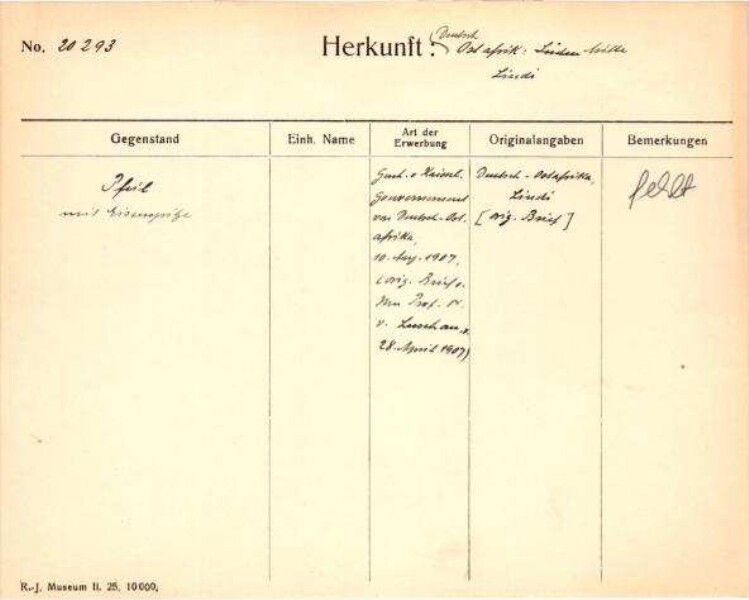 No. 20 293
Herkunft: Deutsch Ostafrik:
Lindi
Gegenstand
Einh. Name
Art der Erwerbung
Originalangaben
Bemerkungen
Pfeil
mit Eisenspitze
Gesch. v. Kaiserl.
Gouvernement
von Deutsch-Ost.
afrika,
10. Aug. 1907,
(orig. Brief v.
Hrn Prof. Dr.
v. Luschan v.
28. April 1907)
Deutsch-Ostafrika,
Lindi
[orig. Brief]
fehlt
R.-J. Museum II. 25. 10000,